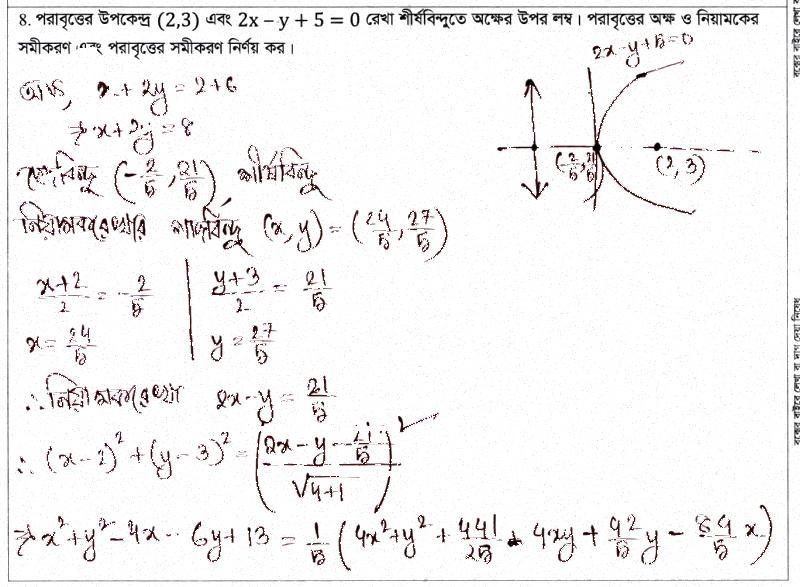 8. পরাবৃত্তের উপকেন্দ্র (2,3) এবং 2x – y + 5 = 0 রেখা শীর্ষবিন্দুতে অক্ষের উপর লম্ব। পরাবৃত্তের অক্ষ ও নিয়ামকের
সমীকরণ এবং পরাবৃত্তের সমীকরণ নির্ণয় কর।
2x-y+5=0
অক্ষ, x+2y = 2+6
⇒ x+2y = 8
(-2/5, 21/5) শীর্ষবিন্দু
(-2/5, 21/5)
(2,3)
নিয়ামকরেখার পাদবিন্দু (x, y) = (24/5, 27/5)
(x+2)/2 = -2/5
(y+3)/2 = 21/5
x = 24/5
y = 27/5
∴ নিয়ামকরেখা 2x-y = 21/5
∴ (x-2)² + (y-3)² = ((2x-y-21/5)/√(4+1))²
⇒ x²+y²-4x-6y+13 = 1/5 (4x²+y²+441/25-4xy+42/5 y-84/5 x)